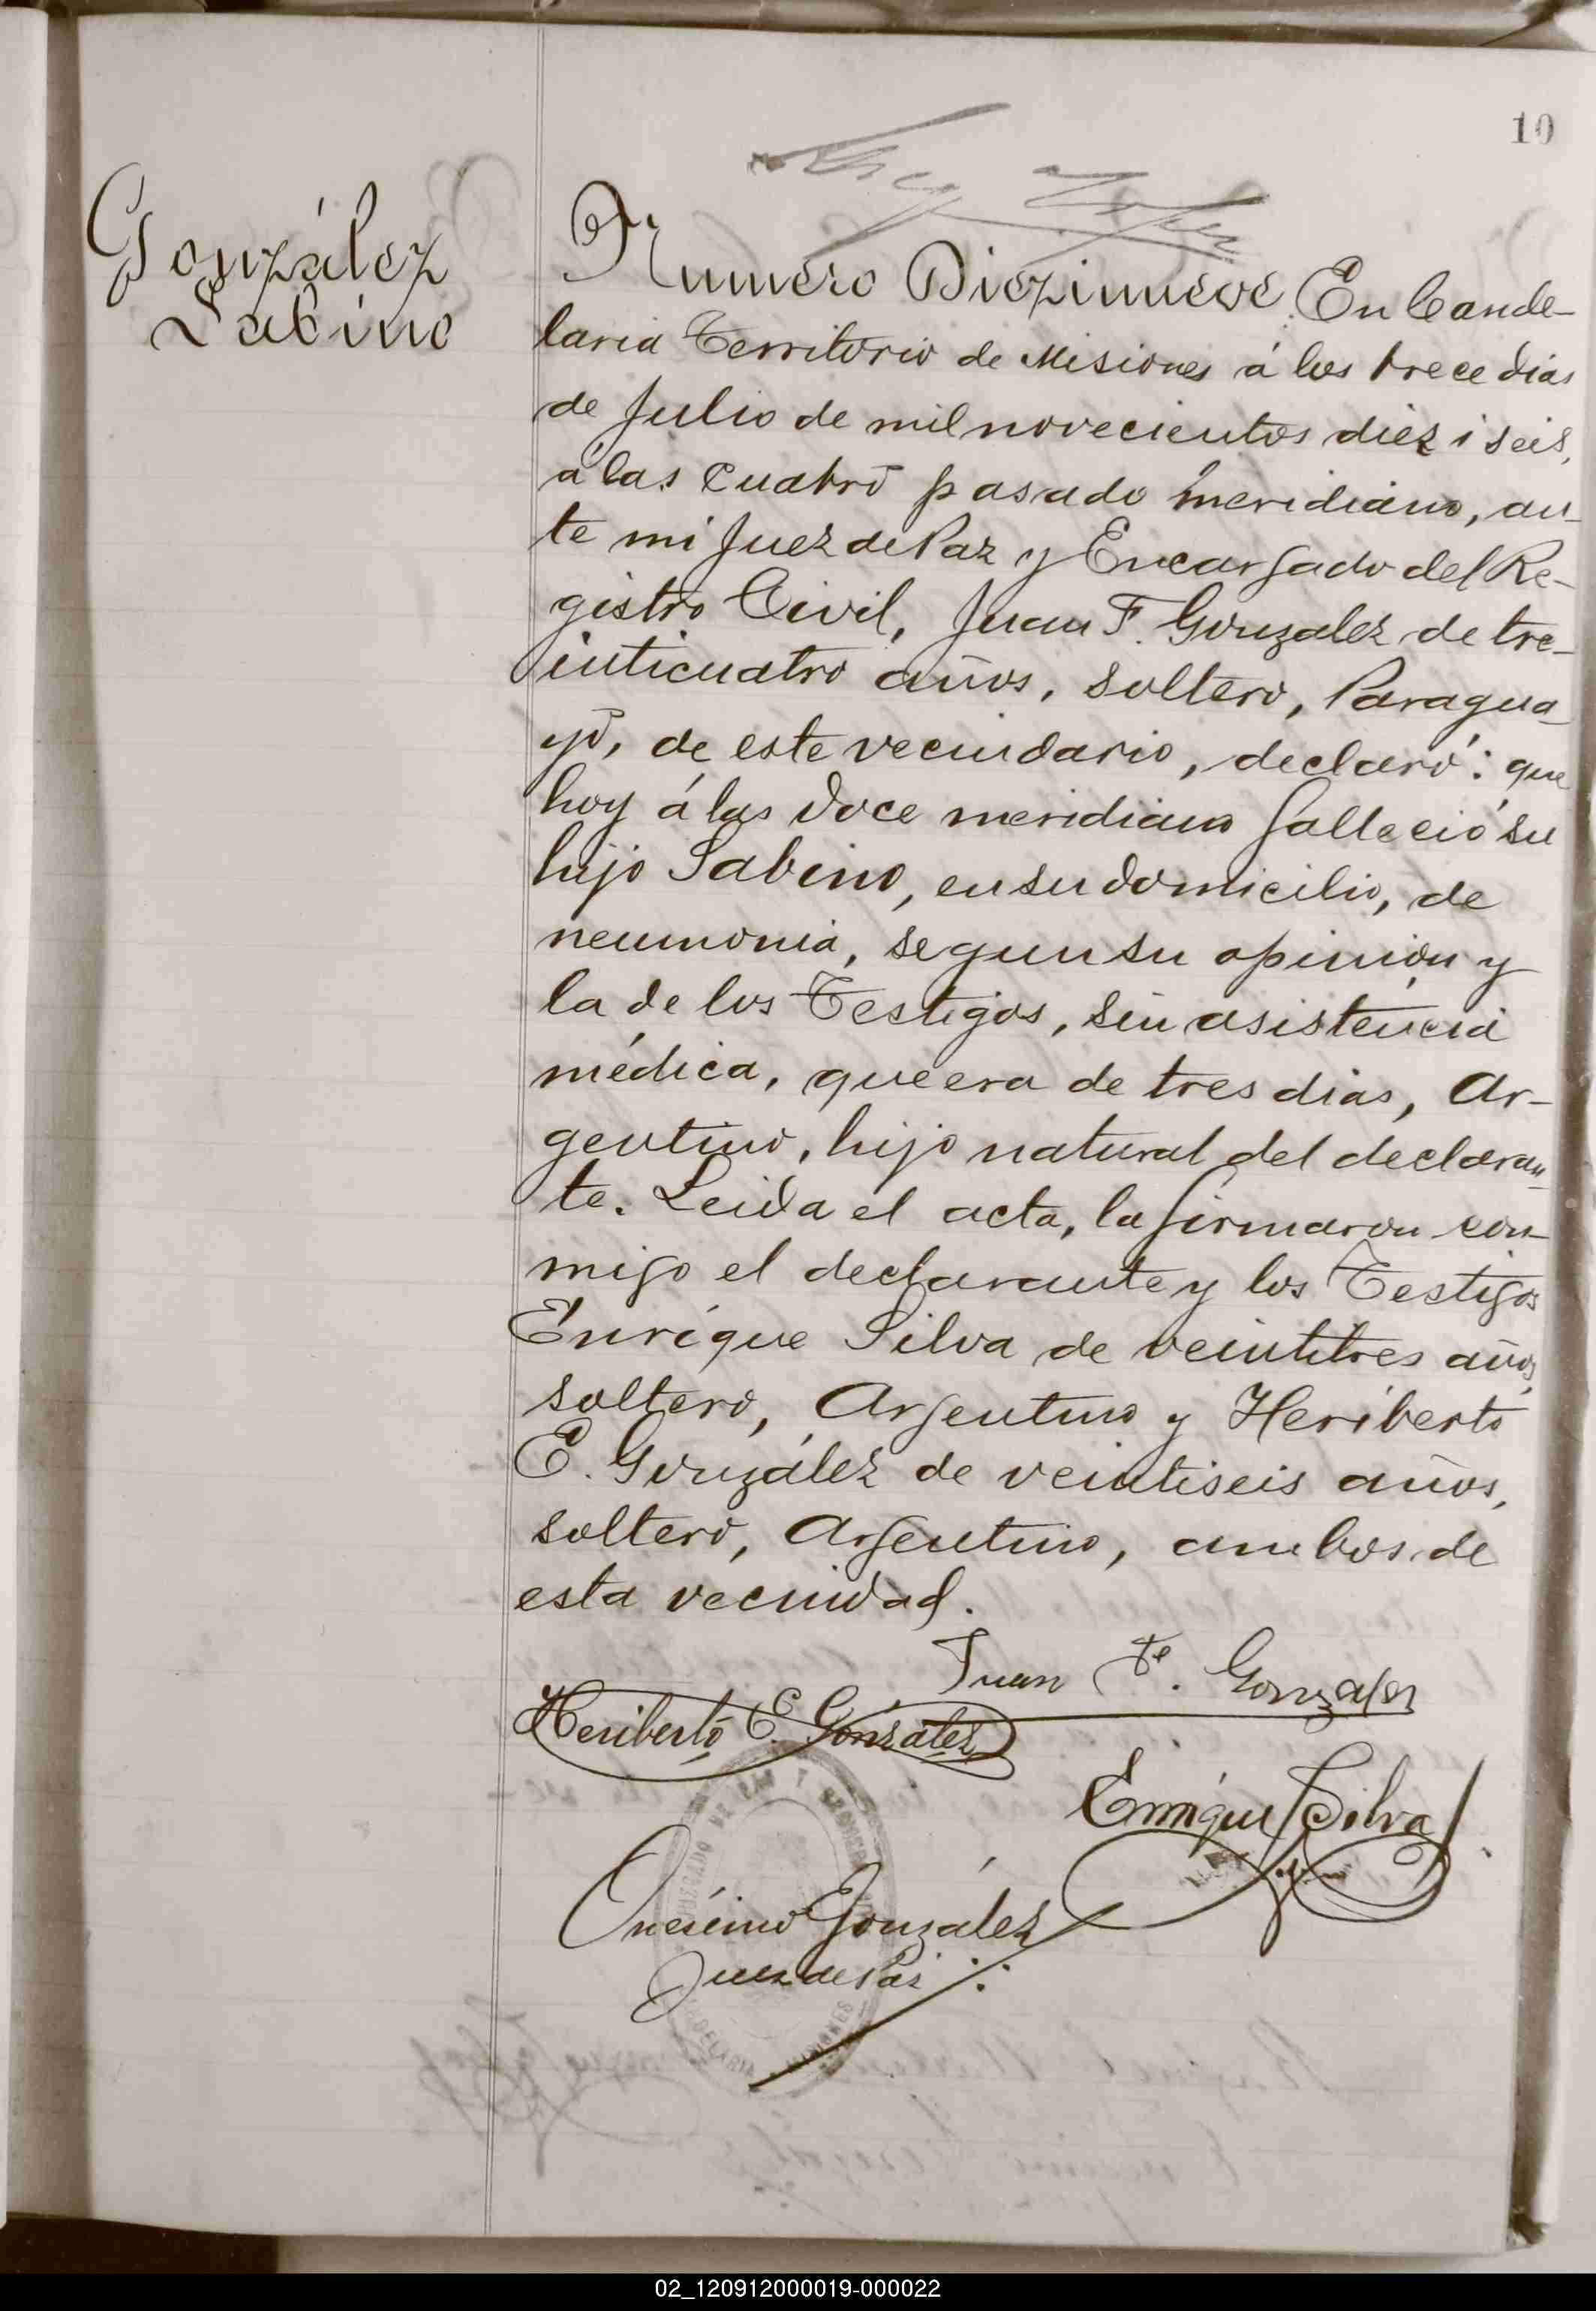 10
González
Sabino
Número Diezinueve. En Cande-
laria Territorio de Misiones á los trece dias
de Julio de mil novecientos diez i seis,
á las cuatro pasado meridiano, an-
te mi Juez de Paz y Encargado del Re-
gistro Civil, Juan F. Gonzalez de tre-
inticuatro años, soltero, Paragua-
yo, de este vecindario, declaró: que
hoy á las doce meridiano falleció su
hijo Sabino, en su domicilio, de
neumonia, segun su opinión y
la de los Testigos, sin asistencia
médica, que era de tres dias, Ar-
gentino, hijo natural del declaran-
te. Leida el acta, la firmaron con-
migo el declarante y los Testigos
Enrique Silva de veintitres años,
soltero, Argentino y Heriberto
E. González de veintiseis años,
soltero, Argentino, ambos de
esta vecindad.
Juan Fe. Gonzalez
Heriberto E. González
Enrique Silva
Onésimo González
Juez de Paz
JUZGADO DE PAZ Y
CANDELARIA MISIONES
02_120912000019-000022